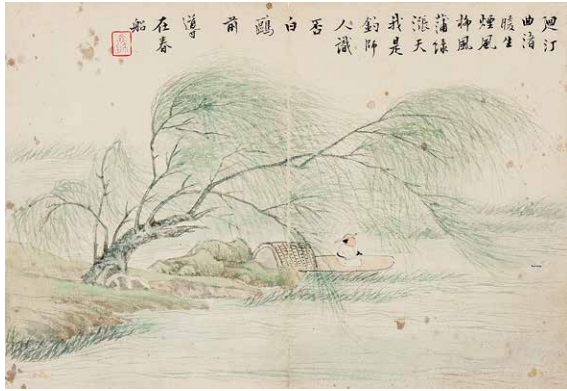 廻汀
曲渚
暖生
煙風
柳風
蒲綠
漲天
我是
釣師
人識
否
白
鷗
前
導
在春
船